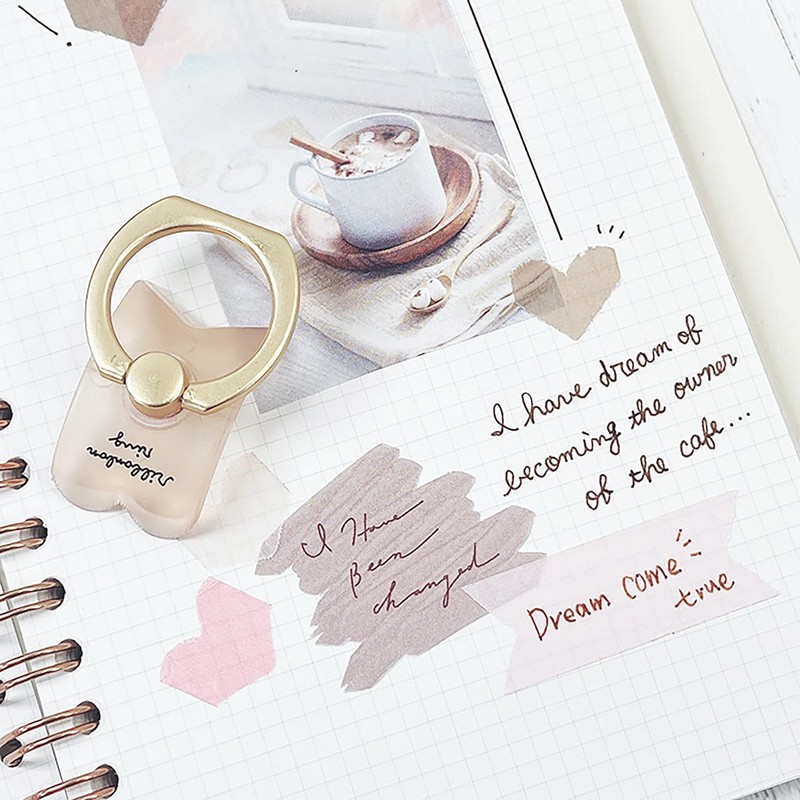 I have dream of
becoming the owner
of the cafe...
I Have
Been
changed
Dream come
true
ribbonbon
ring